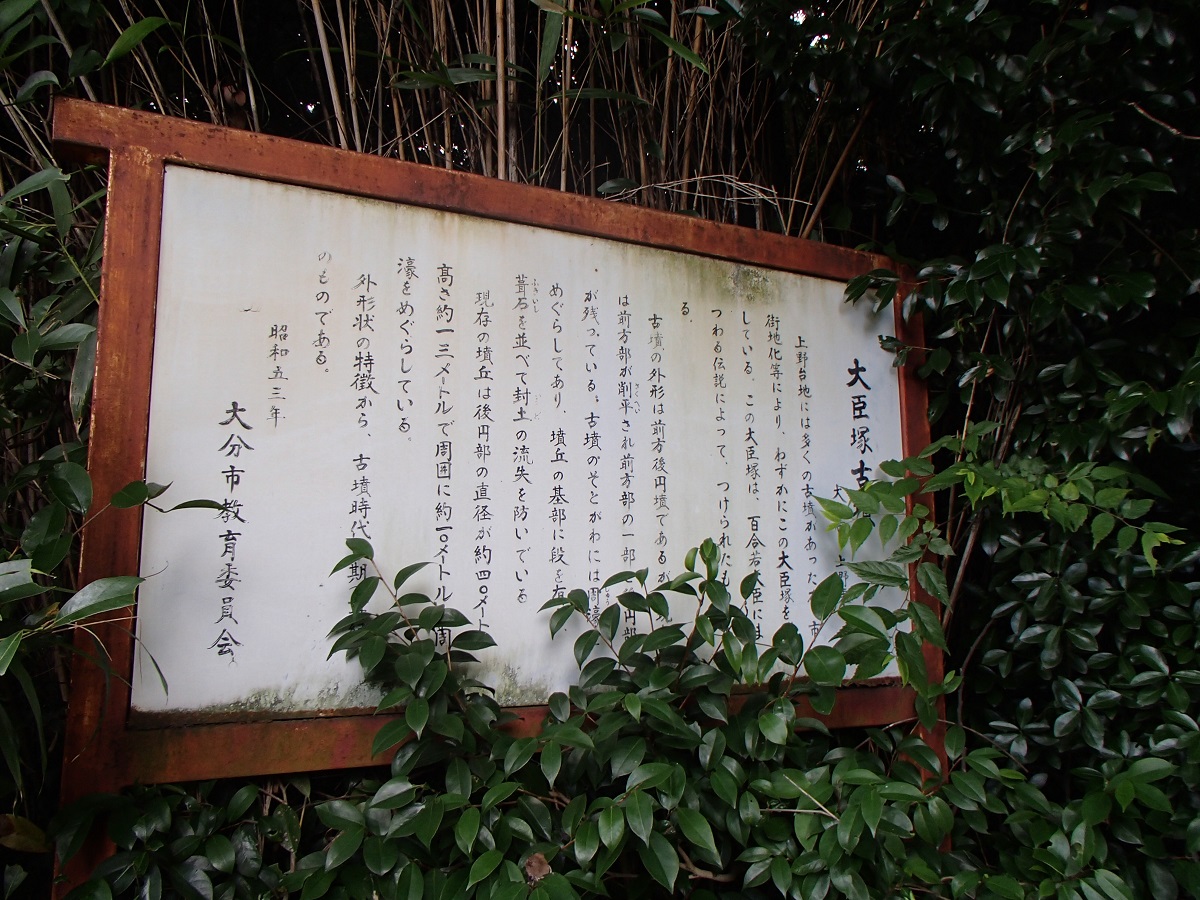 大臣塚古
大 上野
上野台地には多くの古墳があった 市
街地化等により、わずかにこの大臣塚を
している。この大臣塚は、百合若大臣にま
つわる伝説によって、つけられたも
る。
古墳の外形は前方後円墳であるが
は前方部が削平され前方部の一部 円部
が残っている。古墳のそとがわには周濠
めぐらしてあり、墳丘の基部に段を有
葺石を並べて封土の流失を防いでいる
現存の墳丘は後円部の直径が約四〇メート
高さ約一三メートルで周囲に約一〇メートル 周
濠をめぐらしている。
外形状の特徴から、古墳時代 期
のものである。
昭和五三年
大分市教育委員会